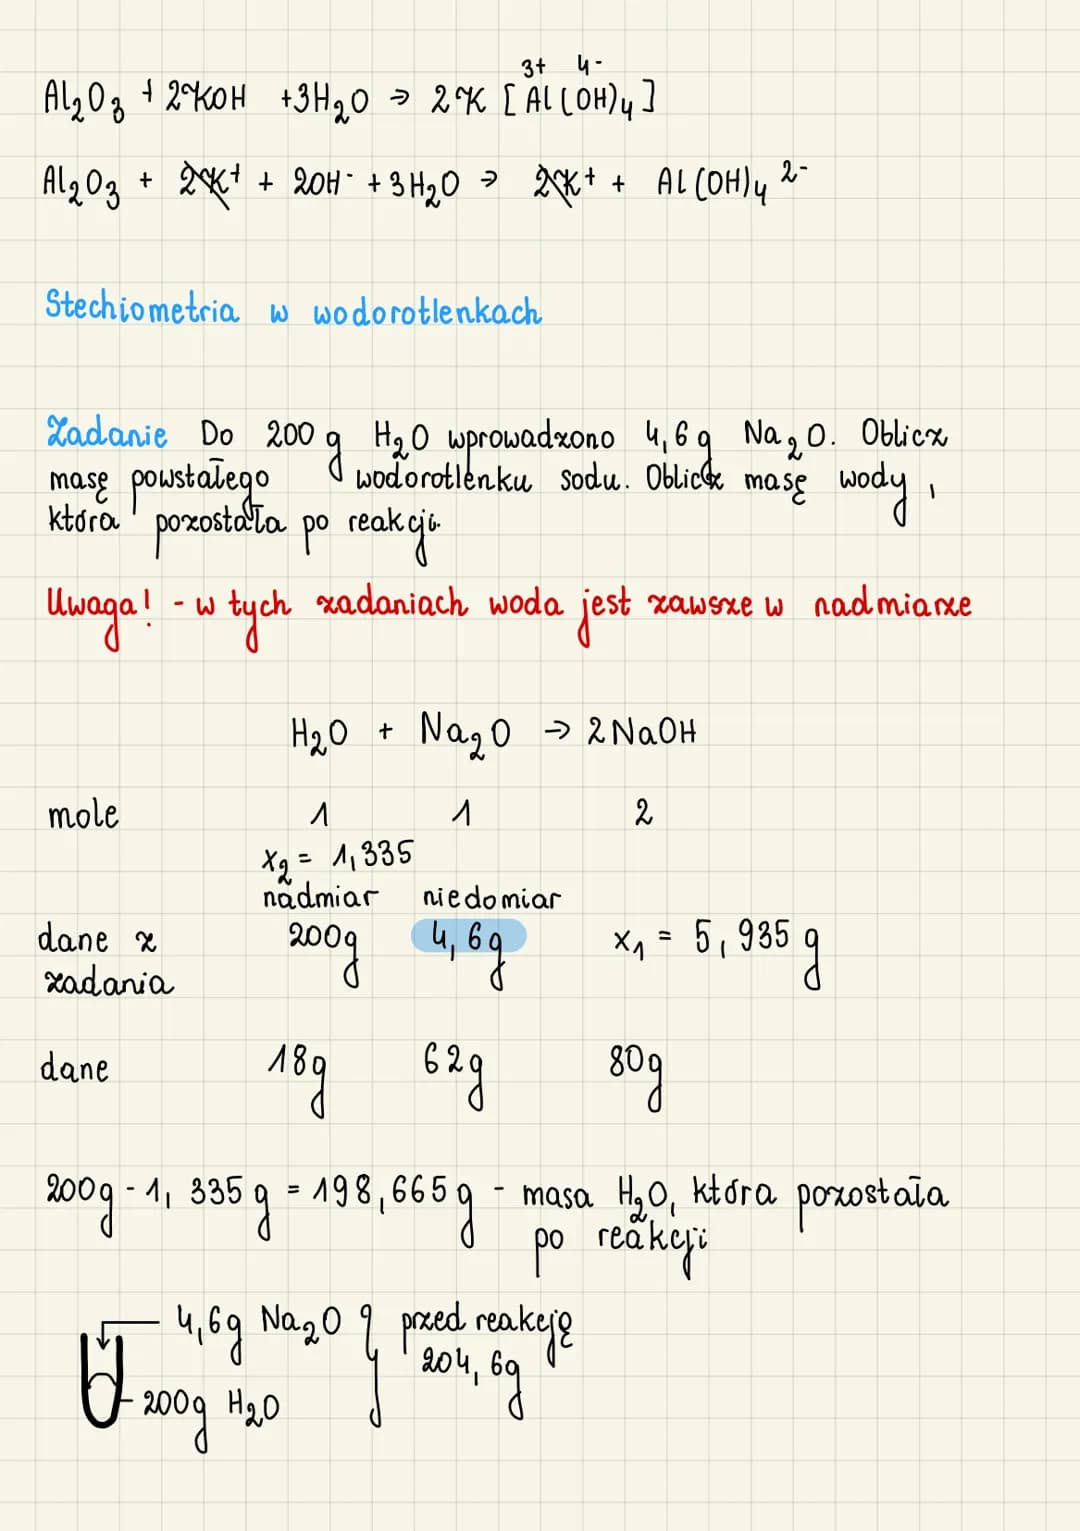 3+ 4-
Al₂O₃ + 2KOH +3H₂O → 2K [Al(OH)₄]
Al₂O₃ + 2K⁺ + 2OH⁻ + 3H₂O → 2K⁺ + Al(OH)₄ ²⁻
Stechiometria w wodorotlenkach
Zadanie Do 200g H₂O wprowadzono 4,6g Na₂O. Oblicz
masę powstałego wodorotlenku sodu. Oblicz masę wody,
która pozostała po reakcji.
Uwaga! - w tych zadaniach woda jest zawsze w nadmiarze
H₂O + Na₂O → 2NaOH
mole 1 1 2
x₂ = 1,335
nadmiar niedomiar
dane z 200g 4,6g x₁ = 5,935 g
zadania
dane 18g 62g 80g
200g - 1,335g = 198,665g - masa H₂O, która pozostała
po reakcji
4,6g Na₂O przed reakcją
204,6g
200g H₂O